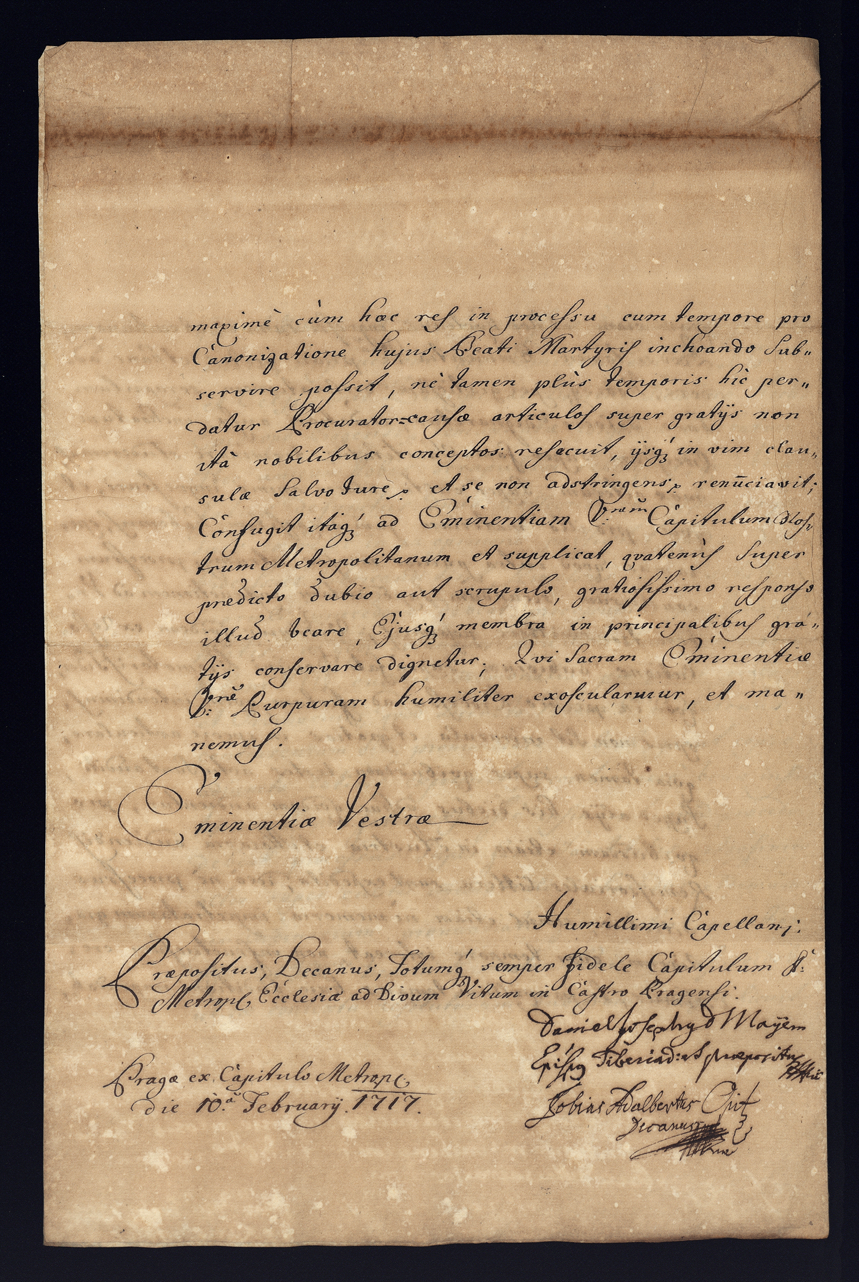 maximè cùm hæc res in processu cum tempore pro
Canonizatione hujus Beati Martyris inchoando sub„
servire possit, nè tamen plùs temporis hìc per„
datur Procurator causæ articulos super gratÿs non
ità nobilibus conceptos resecuit, ÿsq; in vim clau„
sulæ Salvo Jure, et se non adstringens, renũciavit;
Confugit itaq; ad Eminentiam Vram Capitulum Nos„
trum Metropolitanum et supplicat, qvatenùs super
prædicto dubio aut scrupulo, gratiosissimo responso
illud beare, Ejusq; membra in principalibus gra„
tÿs conservare dignetur; Qvi Sacram Eminentiæ
Vræ Purpuram humiliter exoscularmur, et ma„
nemus.
Eminentiæ Vestræ
Humillimi Capellani
Præpositus, Decanus, Totumq; semper fidele Capitulum S:
Metrop: Ecclesiæ ad Divum Vitum in Castro Pragensi.
Daniel Joseph d Mayern
Episc Tiberiad: et præpositus
Pragæ ex Capitulo Metrop:
die 10.a Februarÿ. 1717.
Tobias Adalbertus
Decanus